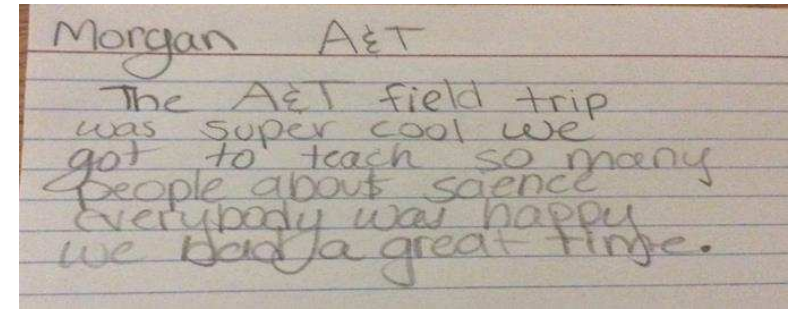 Morgan A&T
The A&T field trip
was super cool we
got to teach so many
people about saence
Everybody was happy
we had a great time.